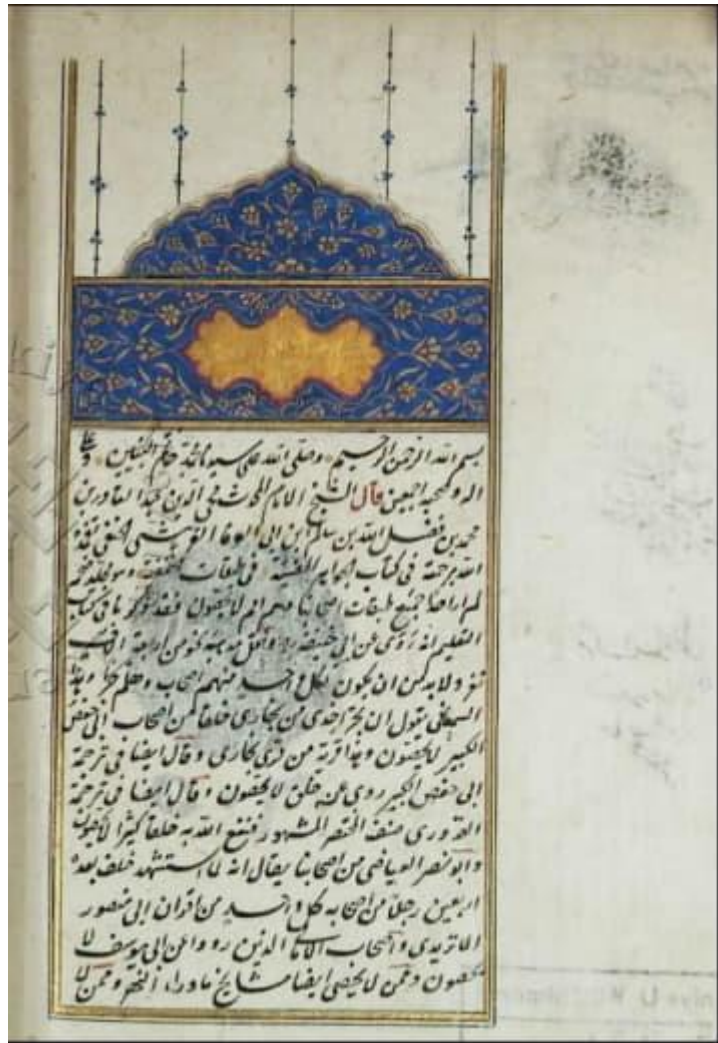 بسم الله الرحمن الرحيم وصلى الله على سيدنا محمد خاتم النبيين وعلى
اله وصحبه اجمعين قال الشيخ الامام المحدث محي الدين عبد القادر بن
محمد بن نصر الله بن سالم ابن ابي الوفا القرشي الحنفي تغمده
الله برحمته في كتاب الجواهر المضيئة في طبقات الحنفية
لم ار احدا جمع طبقات اصحابنا وهم امم لا يحصون فقد ذكر نا في كتاب
التعليم انه روى عن ابي حنيفة ونقل مذهبه نحو من اربعة الاف
نفر ولا بد من ان يكون لكل واحد منهم اصحاب وهلم جرا وهذا
السمعاني يقول ان بخيزاخزى من بخارى خلقا من اصحاب ابي حفص
الكبير لا يحصون وهذا قرية من قرى بخارى وقال ايضا في ترجمة
ابي حفص الكبير روى عنه خلق لا يحصون وقال ايضا في ترجمة
القدوري مصنف المختصر المشهور فنفع الله به خلقا كثيرا لا يحصون
وابو نصر العياضي من اصحابنا يقال انه لما استشهد خلف بعده
اربعين رجلا من اصحابه كل واحد من اقران ابي منصور
الماتريدي واصحاب الامالي الذين رووا عن ابي يوسف لا
يحصون وممن لا يحصى ايضا مشايخ ماوراء النهر وممن لا